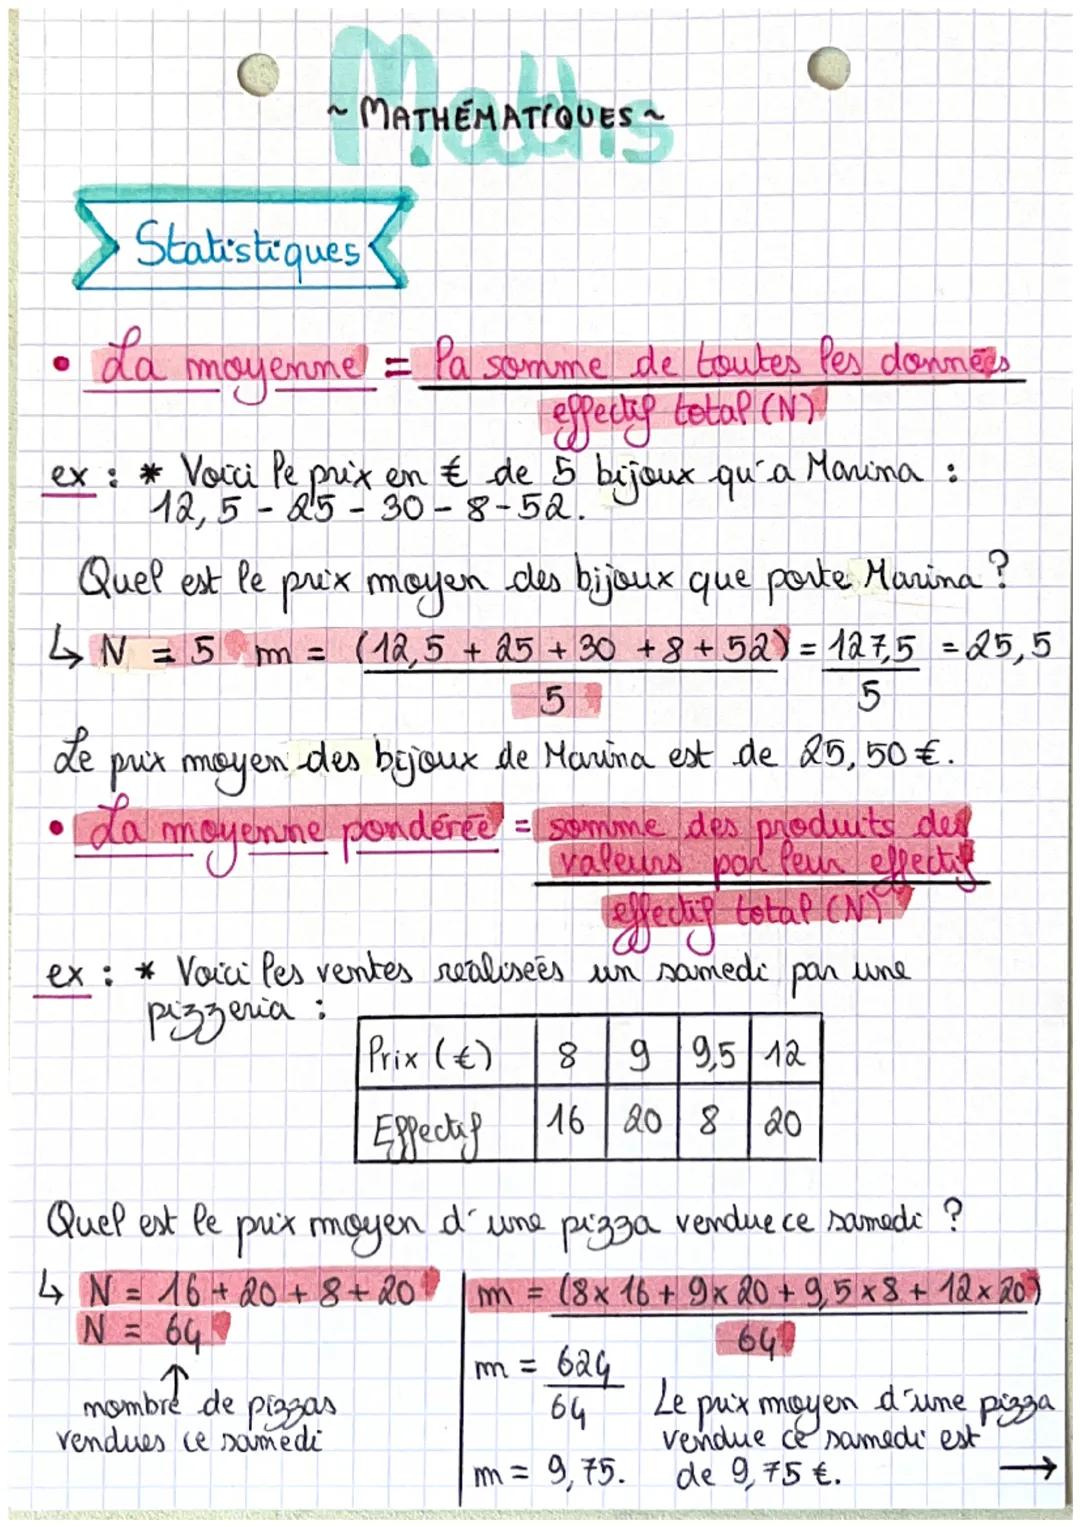 Maths
~ MATHÉMATIQUES ~
Statistiques
• La moyenne = la somme de toutes les données
effectif total (N)
ex : * Voici le prix en € de 5 bijoux qu'a Marina :
12,5 - 25 - 30 - 8 - 52.
Quel est le prix moyen des bijoux que porte Marina ?
↳ N = 5 m = (12,5 + 25 + 30 + 8 + 52) = 127,5 = 25,5
5 5
Le prix moyen des bijoux de Marina est de 25,50 €.
• La moyenne pondérée = somme des produits des
valeurs par leur effectif
effectif total (N)
ex : * Voici les ventes réalisées un samedi par une
pizzeria :
Prix (€) 8 9 9,5 12
Effectif 16 20 8 20
Quel est le prix moyen d'une pizza vendue ce samedi ?
↳ N = 16 + 20 + 8 + 20
N = 64
↑
nombre de pizzas
vendues ce samedi
m = (8 x 16 + 9 x 20 + 9,5 x 8 + 12 x 20)
64
m = 624
64
m = 9,75.
Le prix moyen d'une pizza
vendue ce samedi est
de 9,75 €. →